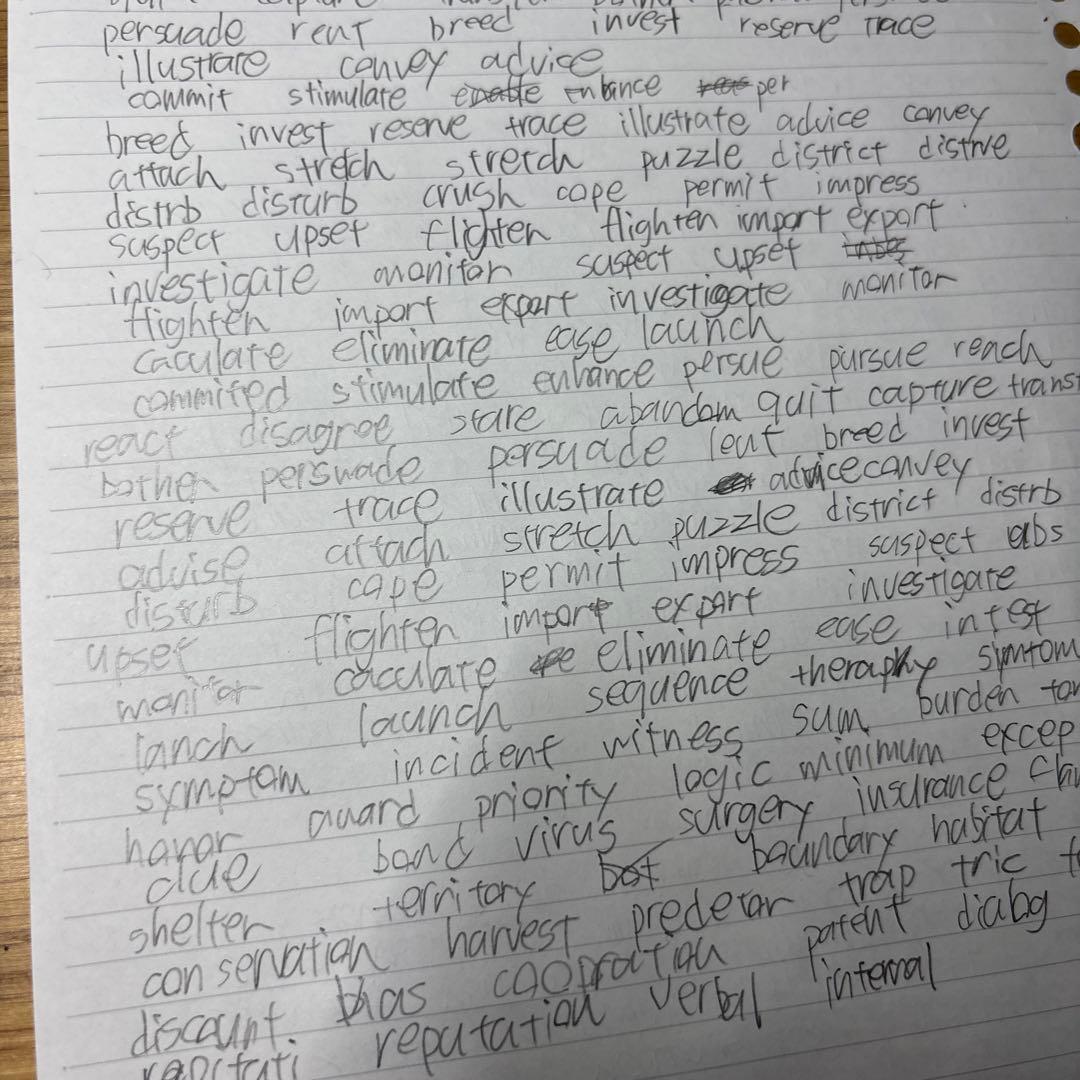 persuade rent breed invest reserve trace
illustrate convey advice
commit stimulate enbance per
breed invest reserve trace illustrate advice convey
attach stretch stretch puzzle district distrve
distrb disturb crush cope permit impress
suspect upset flighten flighten import export
investigate monitor suspect upset
flighten import export investigate monitor
caculate eliminate ease launch
commited stimulate enbance persue pursue reach
react disagree stare abandom quit capture transf
bother perswade persuade leut breed invest
reserve trace illustrate advice convey
advise attach stretch puzzle district distrb
disturb cape permit impress suspect abs
upset flighten import export investigate
monitor caculate eliminate ease intest
lanch launch sequence theraphy symtom
symptom incident witness sum burden
honor award priority logic minimum excep
clue bond virus surgery insurance
shelter territory boundary habitat
conservation harvest predetor trap tric
discount bias cooprotion patent dialog
reputation verbal internal